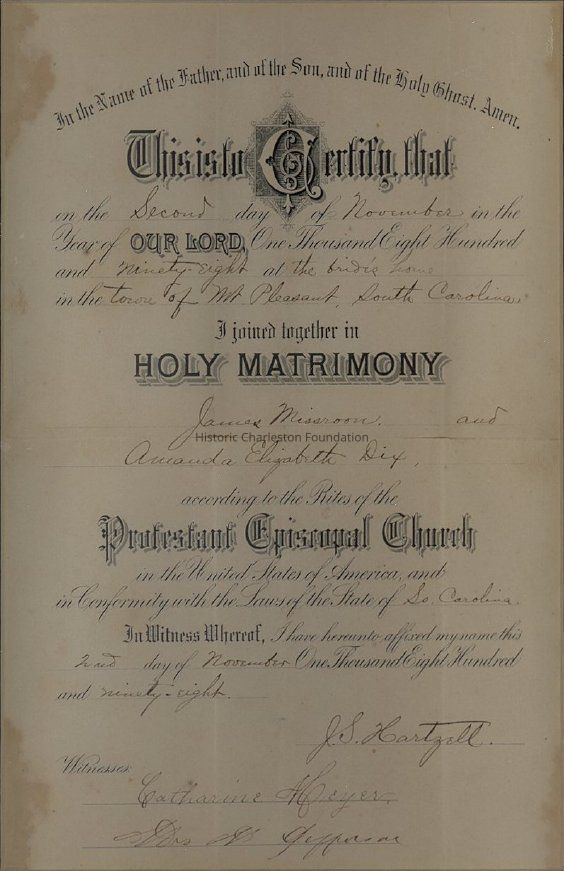 In the Name of the Father, and of the Son, and of the Holy Ghost. Amen.
This is to Certify, that
in the Second day of November in the
Year of OUR LORD, One Thousand Eight Hundred
and ninety-eight at the bride's home
in the town of Mt Pleasant, South Carolina,
I joined together in
HOLY MATRIMONY
James Missroon. and
Historic Charleston Foundation
Amanda Elizabeth Dix,
according to the Rites of the
Protestant Episcopal Church
in the United States of America, and
in Conformity with the Laws of the State of So. Carolina.
In Witness Whereof, I have hereunto affixed my name this
2nd day of November One Thousand Eight Hundred
and ninety-eight.
J.S. Hartzell.
Witnesses
Catharine Meyer
Jefferson